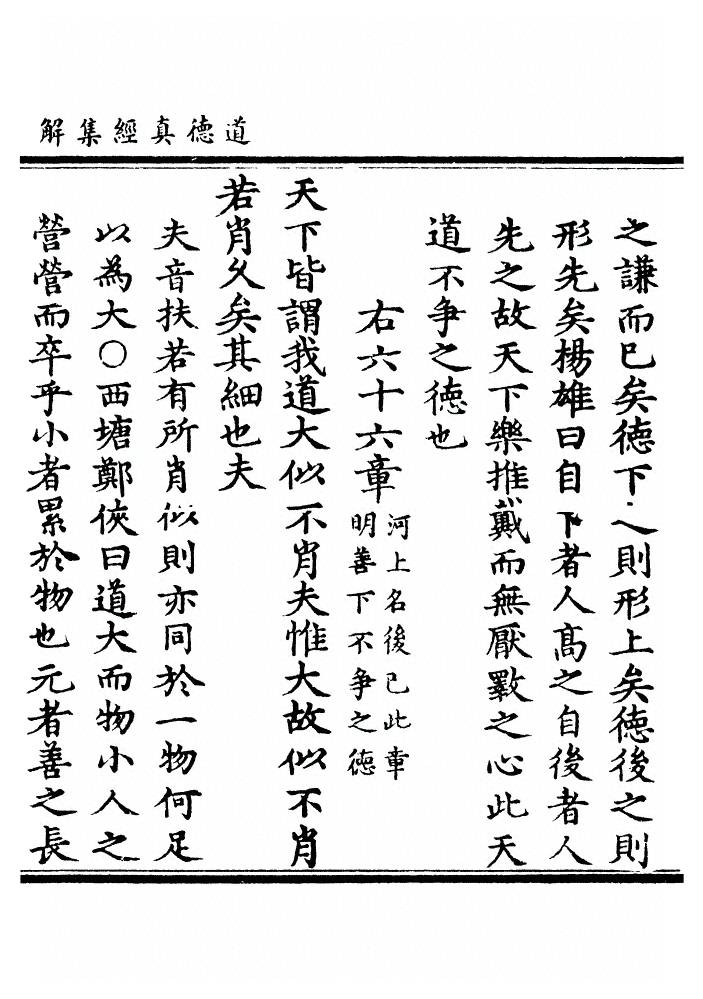 道德真經集解
之謙而已矣德下之則形上矣德後之則
形先矣楊雄曰自下者人髙之自後者人
先之故天下樂推戴而無厭斁之心此天
道不争之德也
右六十六章
河上名後已此章
明善下不争之德
天下皆謂我道大似不肖夫惟大故似不肖
若肖久矣其細也夫
夫音扶若有所肖似則亦同於一物何足
以為大〇西塘鄭俠曰道大而物小人之
營營而卒乎小者累於物也元者善之長